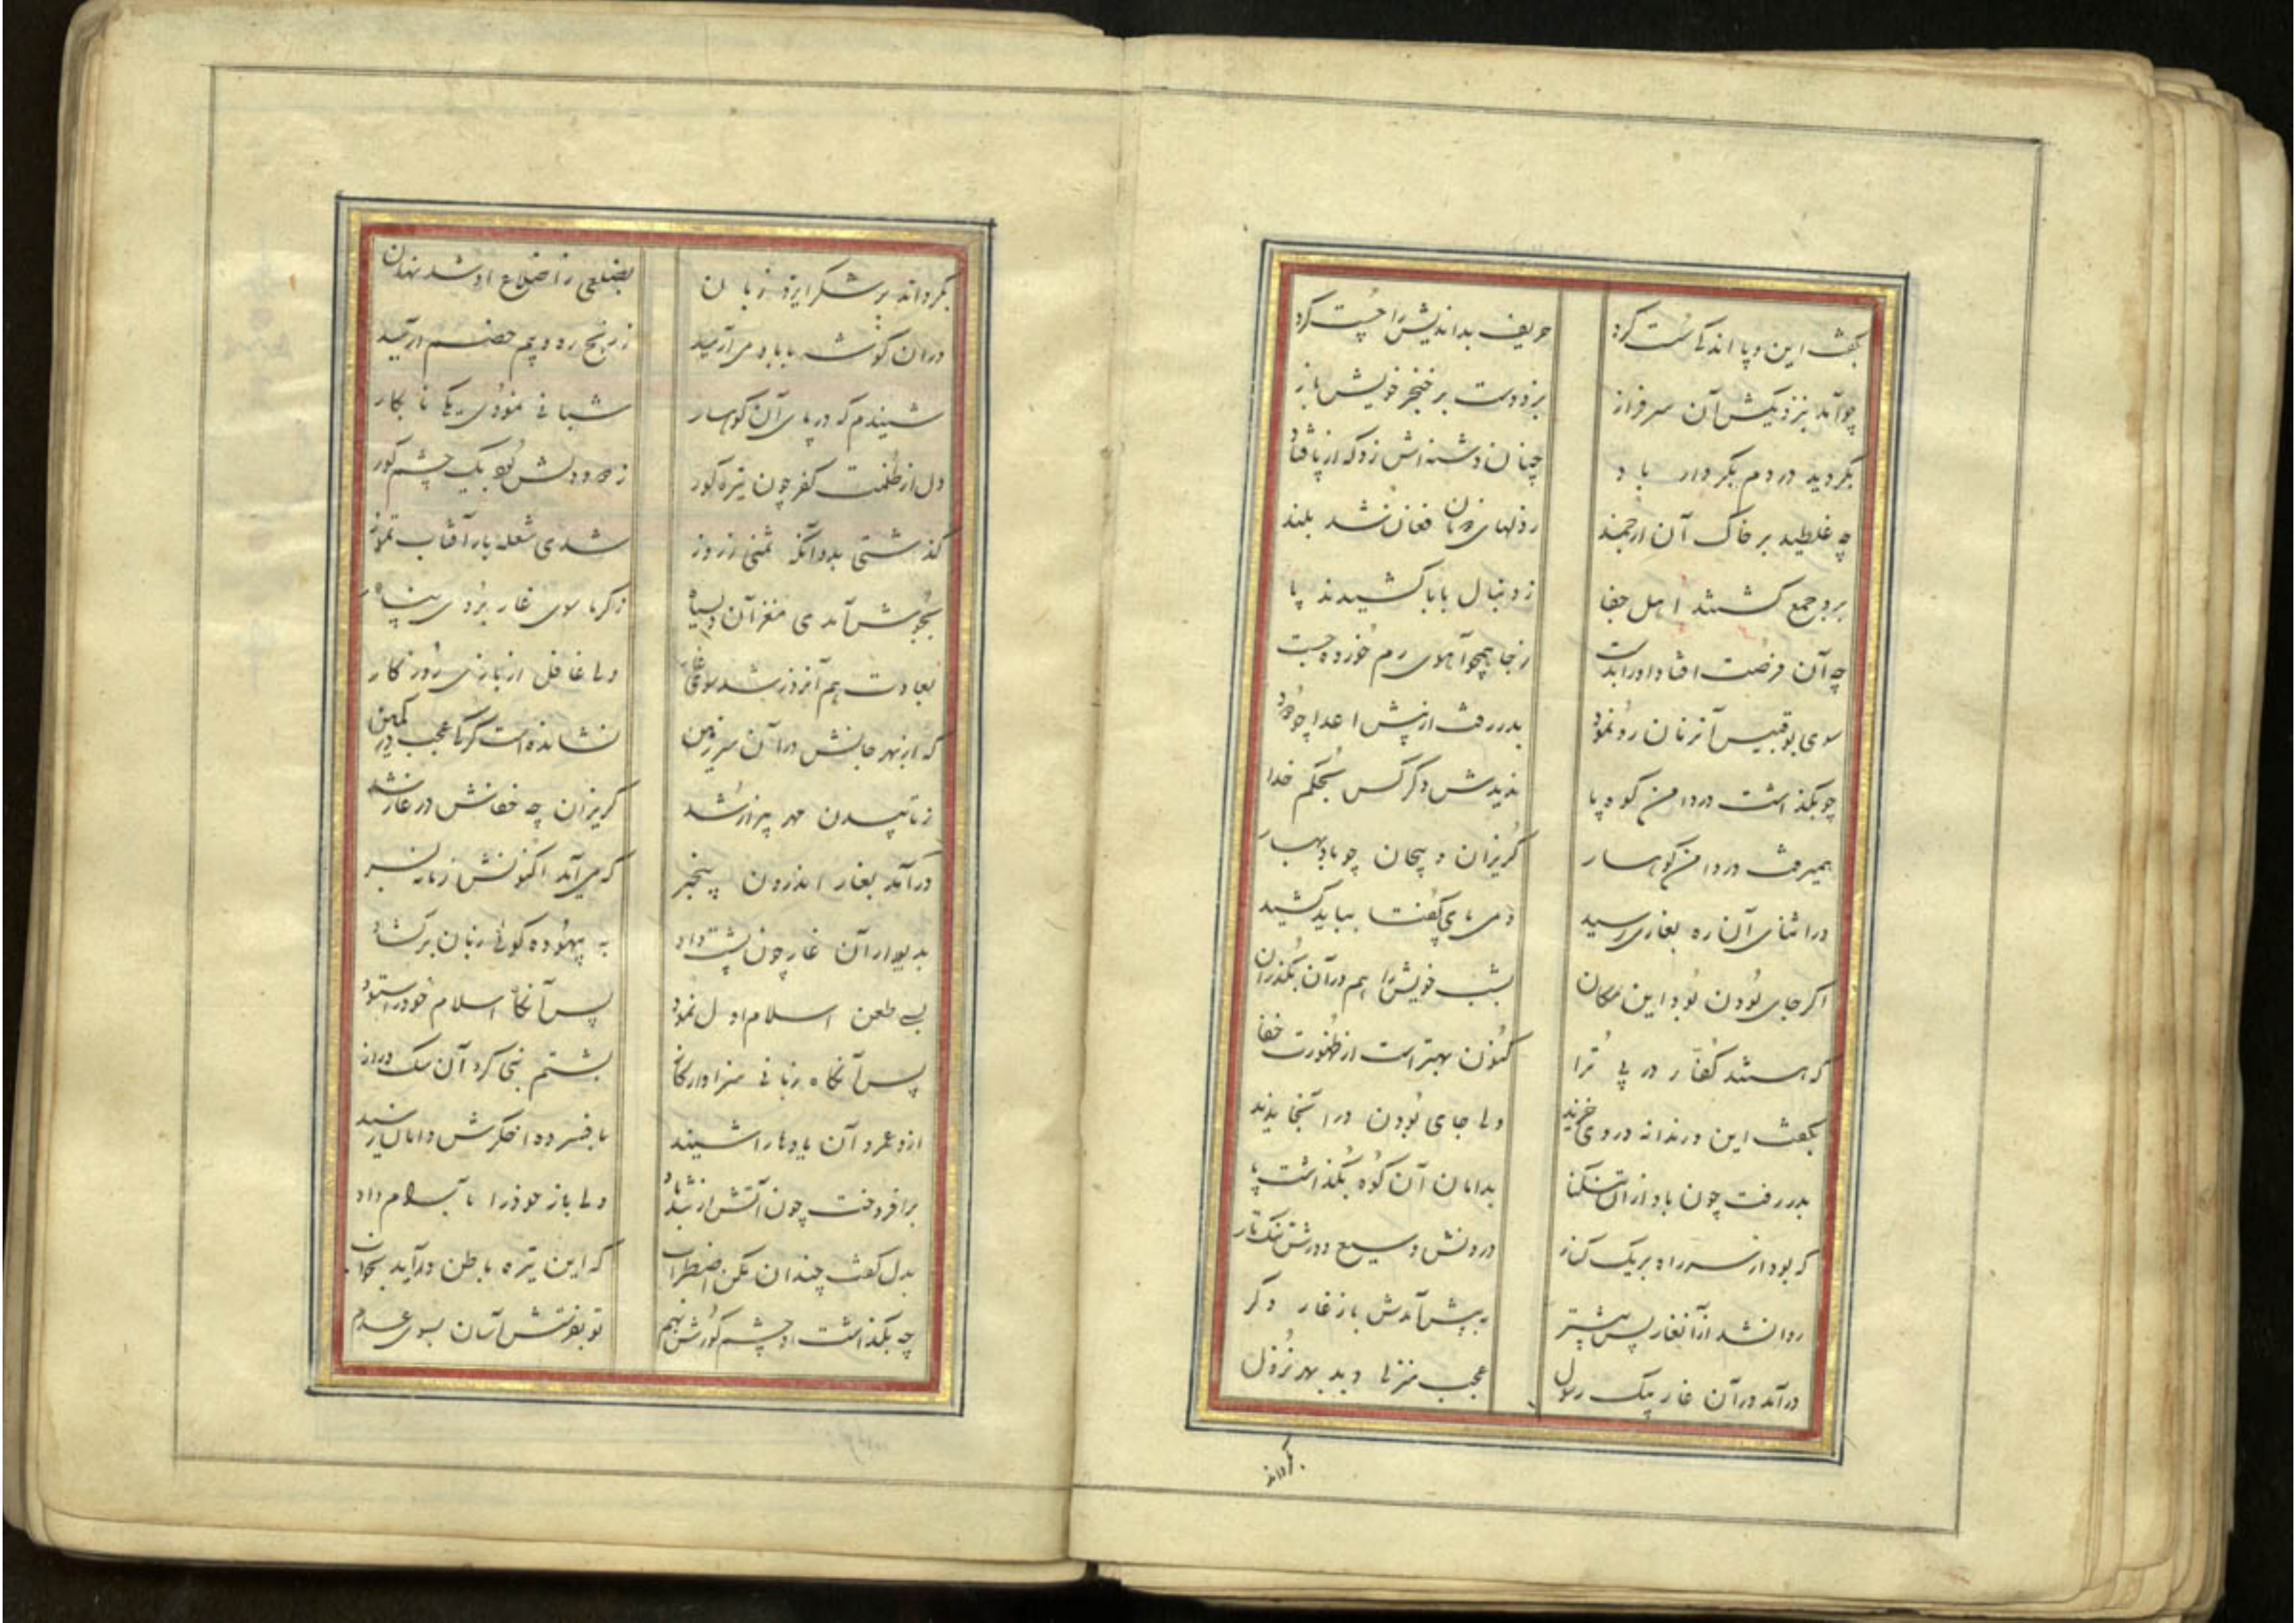 بگفت این و پا اندکی سست کرد حریف بداندیش را چست کرد
چو آمد بنزدیکش آن سرفراز بزد دست بر خنجر خویش باز
بگردید در دم بکردار باد چنان دشنه اش زد که از پا فتاد
چه غلطید بر خاک آن ارجمند زنان فغان شد بلند
برو جمع گشتند اهل جفا ز دنبال بابا کشیدند پا
چه آن فرصت افتاد او را بدست ز جا همچو آهوی رم خورده جست
سوی بوقبیس آنزمان رو نمود بدر رفت از پیش اعدا چو دود
چو بگذاشت در دامن کوه پا ندیدش دگر کس بحکم خدا
همیرفت در دامن کوهسار گریزان و پیچان چو باد بهار
در اثنای آن ره بغاری رسید دمی گفت باید کشید
اگر جای بودن بود این مکان بشب خویش را هم در آن بگذران
که هستند کفار در پی ترا کنون بهتر است از ظهورت خفا
بگفت این و رندانه در وی خزید ولی جای بودن در آنجا ندید
بدر رفت چون باد از آن تنگنا بدامان آن کوه بگذاشت پا
که بود از سر راه بر یک کنار درونش وسیع و درش تنگ و تار
روان شد از آن غار پس پیشتر به پیش آمدش باز غار دگر
در آمد در آن غار پیک رسول عجب منزلی دید بهر نزول
بگرداند
بگرداند بر شکر ایزد زبان بضلعی ز اضلاع او شد نهان
در آن گوشه بابا دمی آرمید ز رنج ره و بیم خصم آرمید
شنیدم که در پای آن کوهسار شبانی نمودی یکی نابکار
دل از ظلمت کفر چون تیره گور ز دو دلش بود یک چشم کور
گذشتی بدو آنکه ثمنی ز روز شدی شعله بار آفتاب تموز
بجوش آمدی مغز آن دلسیاه ز گرما سوی غار بردی پناه
بعادت هم آنروز شد سوی غار ولی غافل از بازی روزگار
که از بهر جانش در آن سرزمین نشانده است گرگ عجب در کمین
ز تابیدن مهر پیزار شد گریزان چه خفاش در غار شد
در آمد بغار اندرون بیخبر که می آید اکنونش زمانه بسر
بدیوار آن غار چون پشت داد به بیهوده گوئی زبان برگشاد
بسی طعن اسلام اول نمود پس آنگاه اسلام خود را ستود
پس آنگاه زبانی سزاوار بشتم نبی کرد آن سگ دراز
ازو عمرو آن یاوه ها را شنید بافسرده اخگرش دامان رسید
برافروخت چون آتش از تندباد ولی باز خود را بآرام داد
بدل گفت چندان مکن اضطراب که این تیره باطن در آید بخواب
چه بگذاشت او چشم کورش بهم تو بفرستش آسان بسوی عدم